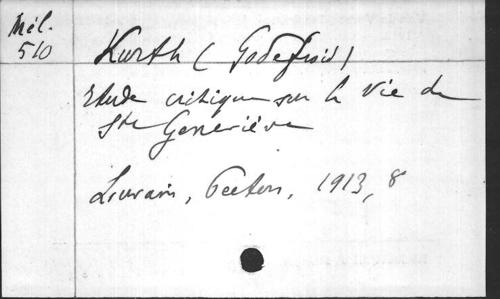 Mél.
510
Kurth (Godefroid)
Etude critique sur la vie de
Ste Geneviève
Louvain, Peeters, 1913, 8